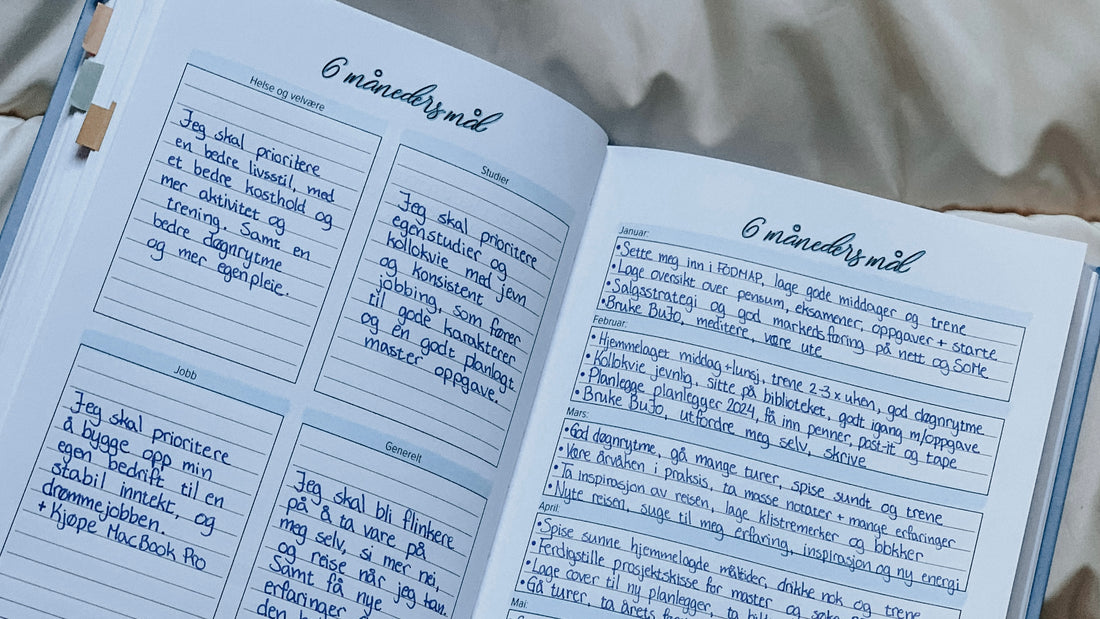 6 måneders mål
Helse og velvære
Jeg skal prioritere
en bedre livsstil, med
et bedre kosthold og
mer aktivitet og
trening. Samt en
bedre døgnrytme
og mer egenpleie.
Studier
Jeg skal prioritere
egenstudier og
kollokvie med jevn
og konsistent
jobbing, som fører
til gode karakterer
og en godt planlagt
master oppgave.
Jobb
Jeg skal prioritere
å bygge opp min
egen bedrift til en
stabil inntekt, og
drømmejobben.
+ Kjøpe MacBook Pro
Generelt
Jeg skal bli flinkere
på å ta vare på
meg selv, si mer nei,
og reise når jeg kan.
Samt få nye
erfaringer
den
6 måneders mål
Januar:
• Sette meg inn i FODMAP, lage gode middager og trene
• Lage oversikt over pensum, eksamener, oppgaver + starte
• Salgsstrategi og god markedsføring på nett og SoMe
• Bruke BuJo, meditere, være ute
Februar:
• Hjemmelaget middag + lunsj, trene 2-3 x uken, god døgnrytme
• Kollokvie jevnlig, sitte på biblioteket, godt igang m/oppgave
• Planlegge planlegger 2024, få inn penner, post-it og tape
• Bruke BuJo, utfordre meg selv, skrive
Mars:
• God døgnrytme, gå mange turer, spise sundt og trene
• Være årvåken i praksis, ta masse notater + mange erfaringer
• Ta inspirasjon av reisen, lage klistremerker og blokker
• Nyte reisen, suge til meg erfaring, inspirasjon og ny energi
April:
• Spise sunne hjemmelagde måltider, drikke nok og trene
• Ferdigstille prosjektskisse for master og søke
• Lage cover til ny planlegger, ta
• Gå turer, ta årets
Mai: